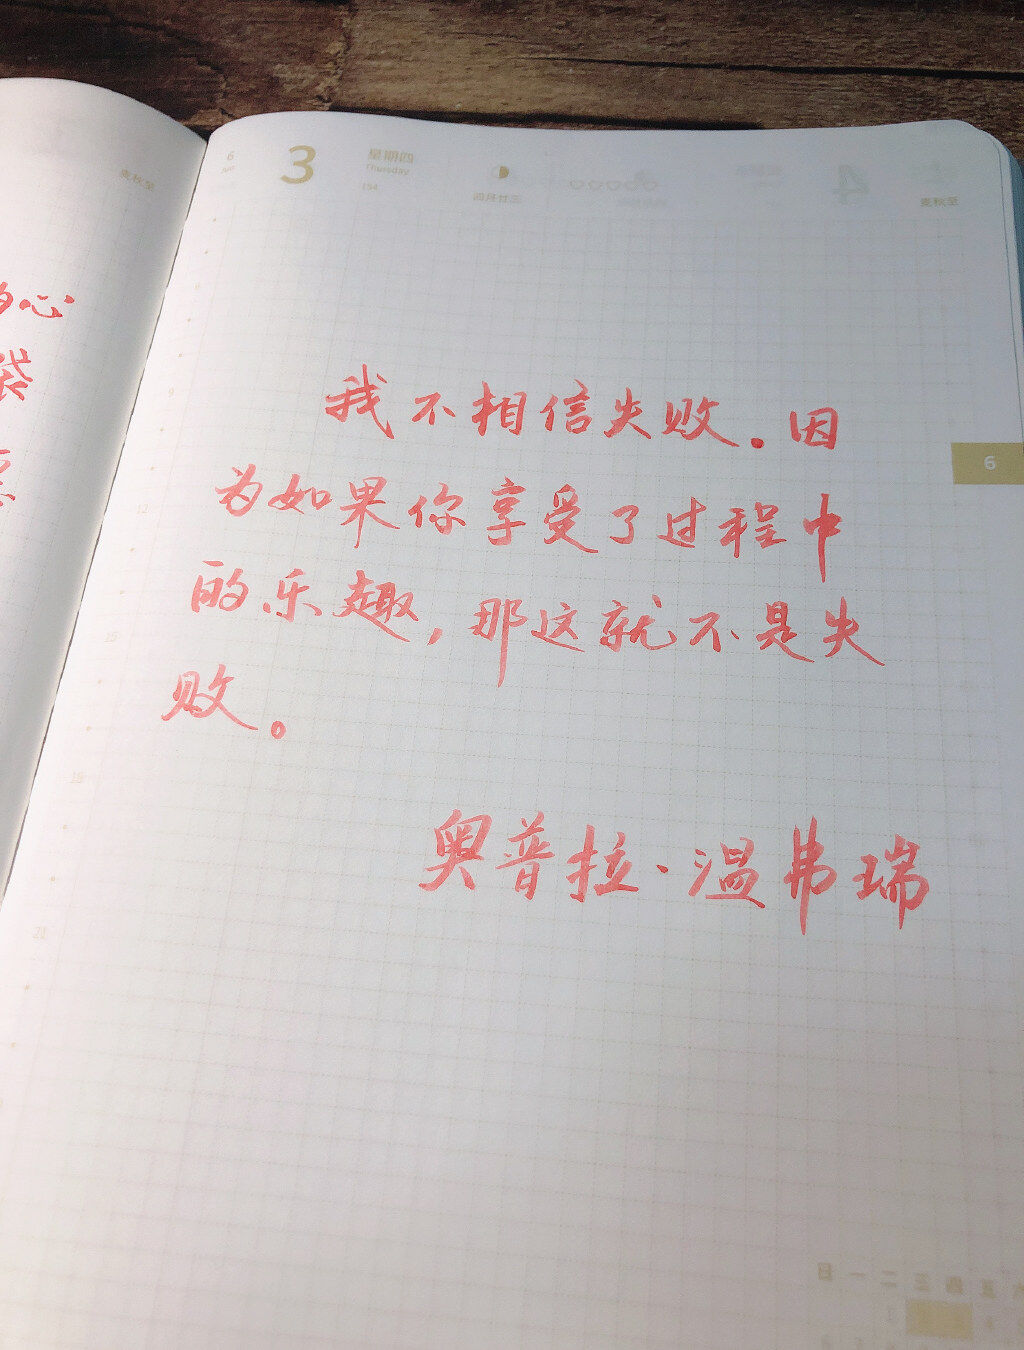 6
Jun
3
星期四
Thursday
154
四月廿三
麦秋至
麦秋至
的心
袋
票
我不相信失败。因
为如果你享受了过程中
的乐趣，那这就不是失
败。
奥普拉·温弗瑞
6
9
12
15
18
21